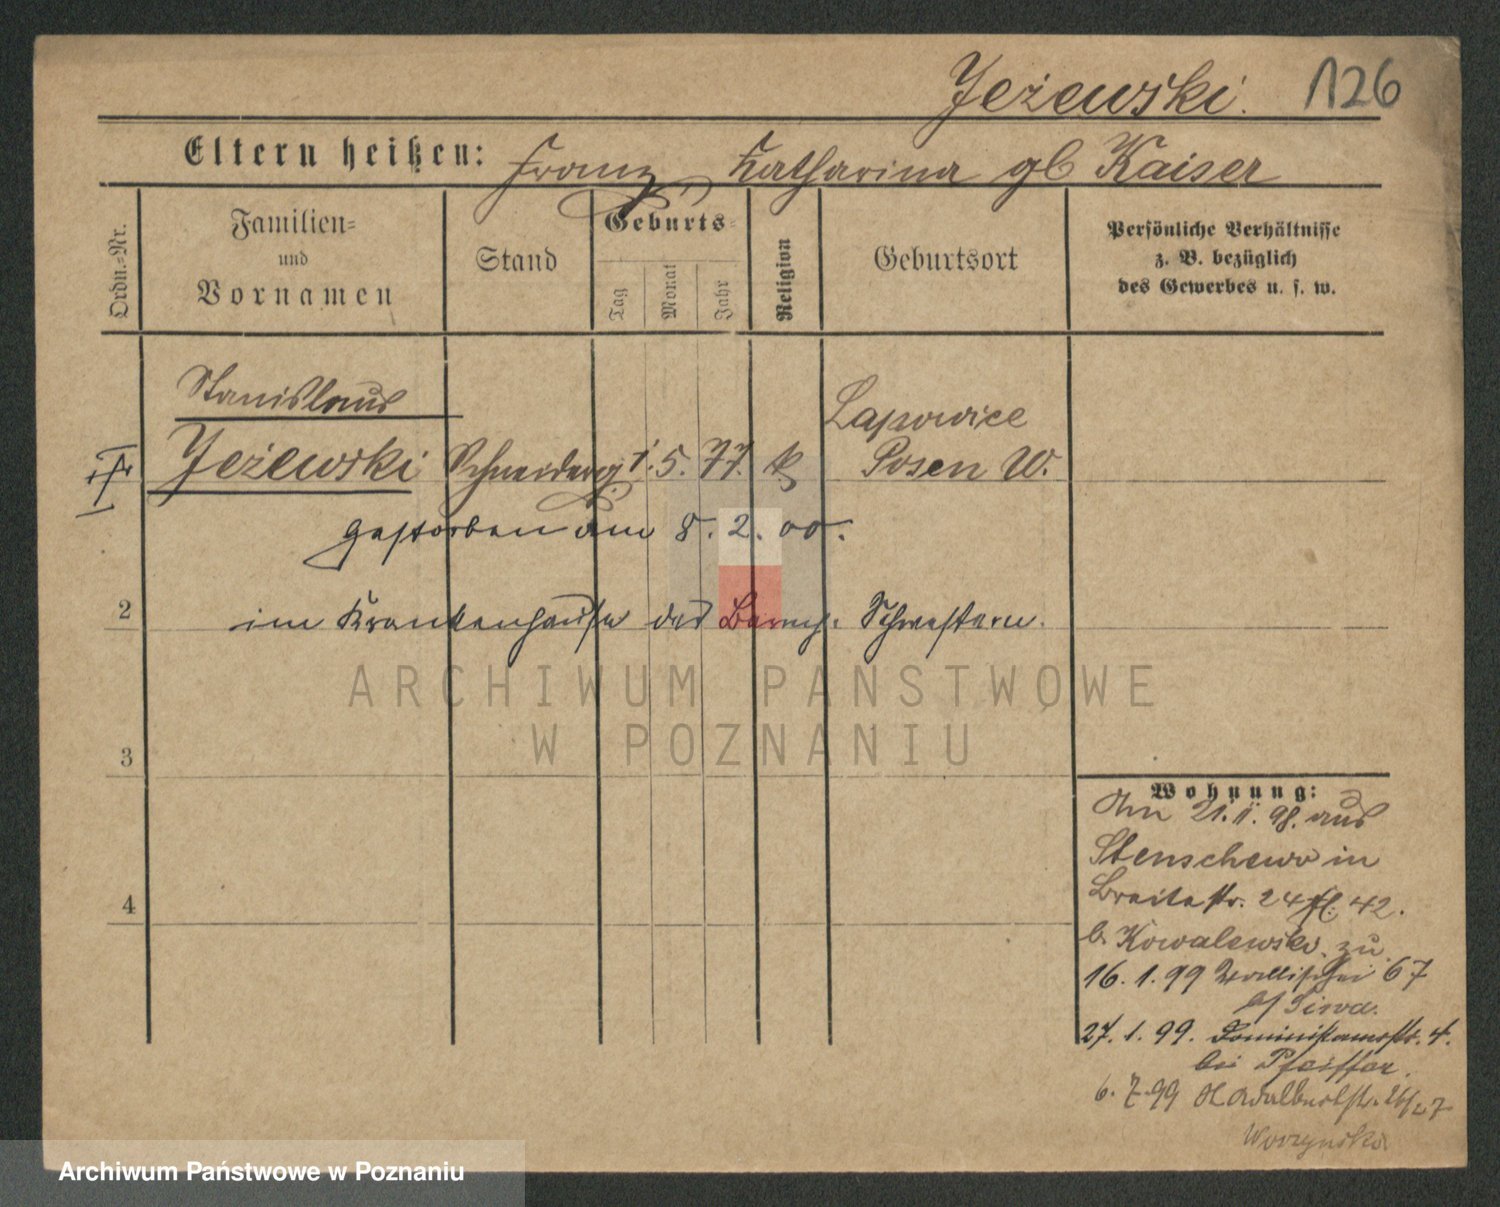 Jeżewski. 126
Eltern heißen: Franz, Katharina gb Kaiser
Ordn.-Nr.
Familien-
und
Vornamen
Stand
Geburts-
Tag
Monat
Jahr
Religion
Geburtsort
Persönliche Verhältnisse
z. B. bezüglich
des Gewerbes u. s. w.
Stanislaus
Jeżewski Schneiderg. 1. 5. 77. k
Lapowice
Posen W.
gestorben am 8. 2. 00.
2 im Krankenhause der Barmh. Schwestern.
ARCHIWUM PAŃSTWOWE
W POZNANIU
3
4
Wohnung:
Am 21.11.98. aus
Stenschewo in
Breitestr. 24 42.
b. Kowalewski zu
16. 1. 99 Wallischei 67
b/
27. 1. 99. Dominikanerstr. 4.
bei Pfeiffer.
6. 7. 99 St Adalbertstr. 26/27
Archiwum Państwowe w Poznaniu